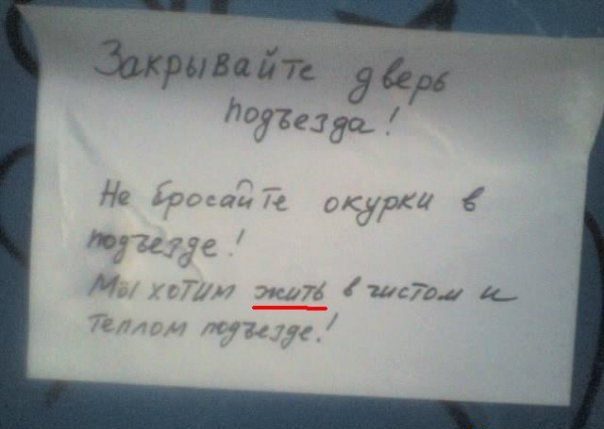 Закрывайте дверь
подъезда!
Не бросайте окурки в
подъезде!
Мы хотим жить в чистом и
теплом подъезде!